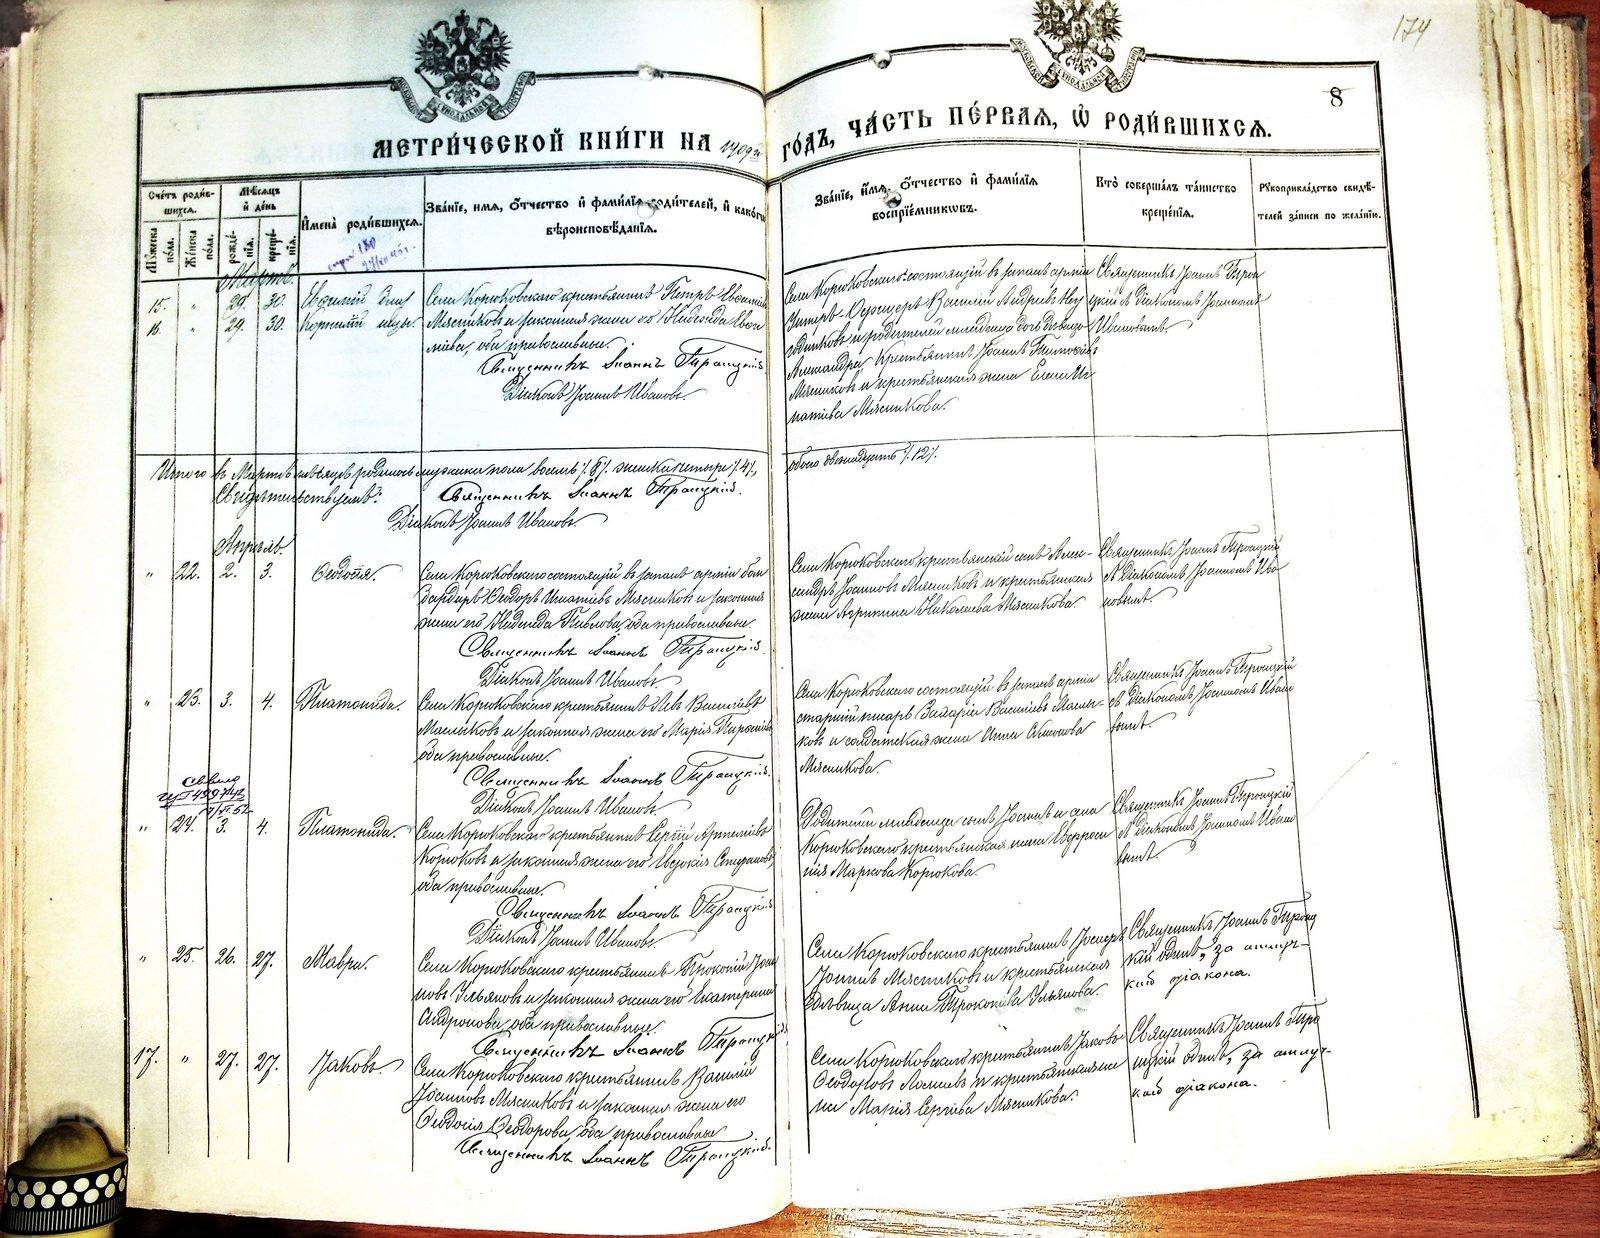 174
8
МЕТРИ́ЧЕСКОЙ КНИ́ГИ НА 1909й ГО́ДЪ, ЧА́СТЬ ПЕ́РВАЯ, Ѽ РОДИ́ВШИХСЯ.
Сче́тъ роди́вшихся.
Мꙋ́жеска по́ла.
Же́нска по́ла.
Мѣ́сяцъ и҆ де́нь
рожде́нїя.
креще́нїя.
И҆мена̀ роди́вшихся.
Зва́нїе, и҆мя, ѻ҆́тчество и҆ фами́лїя роди́телей, и҆ како́гѡ вѣроисповѣ́данїя.
Зва́нїе, и҆́мя, ѻ҆́тчество и҆ фами́лїя воспрїе́мникѡвъ.
Кто̀ соверша́лъ та́инство креще́нїя.
Рꙋкоприкла́дство свидѣ́телей за́писи по жела́нїю.
Мартъ.
15. " 29. 30. Евфимій близ
16. " 29. 30. Корнилій нецы.
Села Корюковскаго крестьянинъ Петръ Евфиміевъ
Мясниковъ и законная жена его Надежда Евфи
міева, оба православные.
Священникъ Іоаннъ Троицкій
Діаконъ Іоаннъ Ивановъ.
Села Корюковскаго состоящій въ запасѣ арміи
Унтеръ-Офицеръ Василій Андреевъ
и родителей младенца дочь дѣвица
Александра, крестьянинъ Іоаннъ
Мясниковъ и крестьянская жена Елена Иг
натіева Мясникова.
Священникъ Іоаннъ Трои
цкій съ Діакономъ Іоанномъ
Ивановымъ.
Итого въ Мартѣ мѣсяцѣ родилось мужска пола восемь /.8/. женска четыре /.4/.,
обоего двенадцать /.12/.
Свидѣтельствуемъ:
Священникъ Іоаннъ Троицкій.
Діаконъ Іоаннъ Ивановъ.
Апрѣль.
" 22. 2. 3. Ѳеодосія.
Села Корюковскаго состоящій въ запасѣ арміи бом
бардиръ Ѳеодоръ Игнатіевъ Мясниковъ и законная
жена его Надежда Павлова, оба православные.
Священникъ Іоаннъ Троицкій.
Діаконъ Іоаннъ Ивановъ.
Села Корюковскаго крестьянскій сынъ Алек-
сандръ Іоанновъ Мясниковъ и крестьянская
жена Агриппина Николаева Мясникова.
Священникъ Іоаннъ Троицкій
съ Діакономъ Іоанномъ Ива
новымъ.
" 23. 3. 4. Платонида.
Села Корюковскаго крестьянинъ Левъ Василіевъ
Масляковъ и законная жена его Марія
оба православные.
Священникъ Іоаннъ Троицкій.
Діаконъ Іоаннъ Ивановъ.
Села Корюковскаго состоящій въ запасѣ арміи
старшій писарь Захарій Василіевъ Масля-
ковъ и солдатская жена Анна
Мясникова.
Священникъ Іоаннъ Троицкій
съ Діакономъ Іоанномъ Ивано
вымъ.
" 24. 3. 4. Платонида.
Села Корюковскаго крестьянинъ Сергій Артеміевъ
Корюковъ и законная жена его Евдокія
оба православные.
Священникъ Іоаннъ Троицкій
Діаконъ Іоаннъ Ивановъ.
Родителей младенца сынъ Іоаннъ и села
Корюковскаго крестьянская жена Евфроси
нія Маркова Корюкова.
Священникъ Іоаннъ Троицкій
съ Діакономъ Іоанномъ Ивано
вымъ.
" 25. 26. 27. Мавра.
Села Корюковскаго крестьянинъ Прокопій Іоан
новъ Ульяновъ и законная жена его Екатерина
Андронова, оба православные.
Священникъ Іоаннъ Троицкій
Села Корюковскаго крестьянинъ Іосифъ
Іоанновъ Мясниковъ и крестьянская
дѣвица Анна Прокопіева Ульянова.
Священникъ Іоаннъ Троиц
кій одинъ, за отлуч-
кой діакона.
17. " 27. 27. Іаковъ.
Села Корюковскаго крестьянинъ Василій
Іоанновъ Мясниковъ и законная жена его
Ѳеодосія Ѳеодорова, оба православные
Священникъ Іоаннъ Троицкій.
Села Корюковскаго крестьянинъ Іаковъ
Ѳеодоровъ и крестьянская же
на Марія Сергіева Мясникова.
Священникъ Іоаннъ Трои
цкій одинъ, за отлуч-
кой діакона.